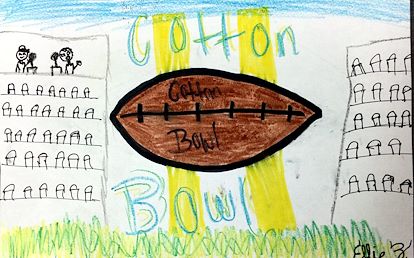 Cotton
Cotton
Bowl
Bowl
Ellie Z